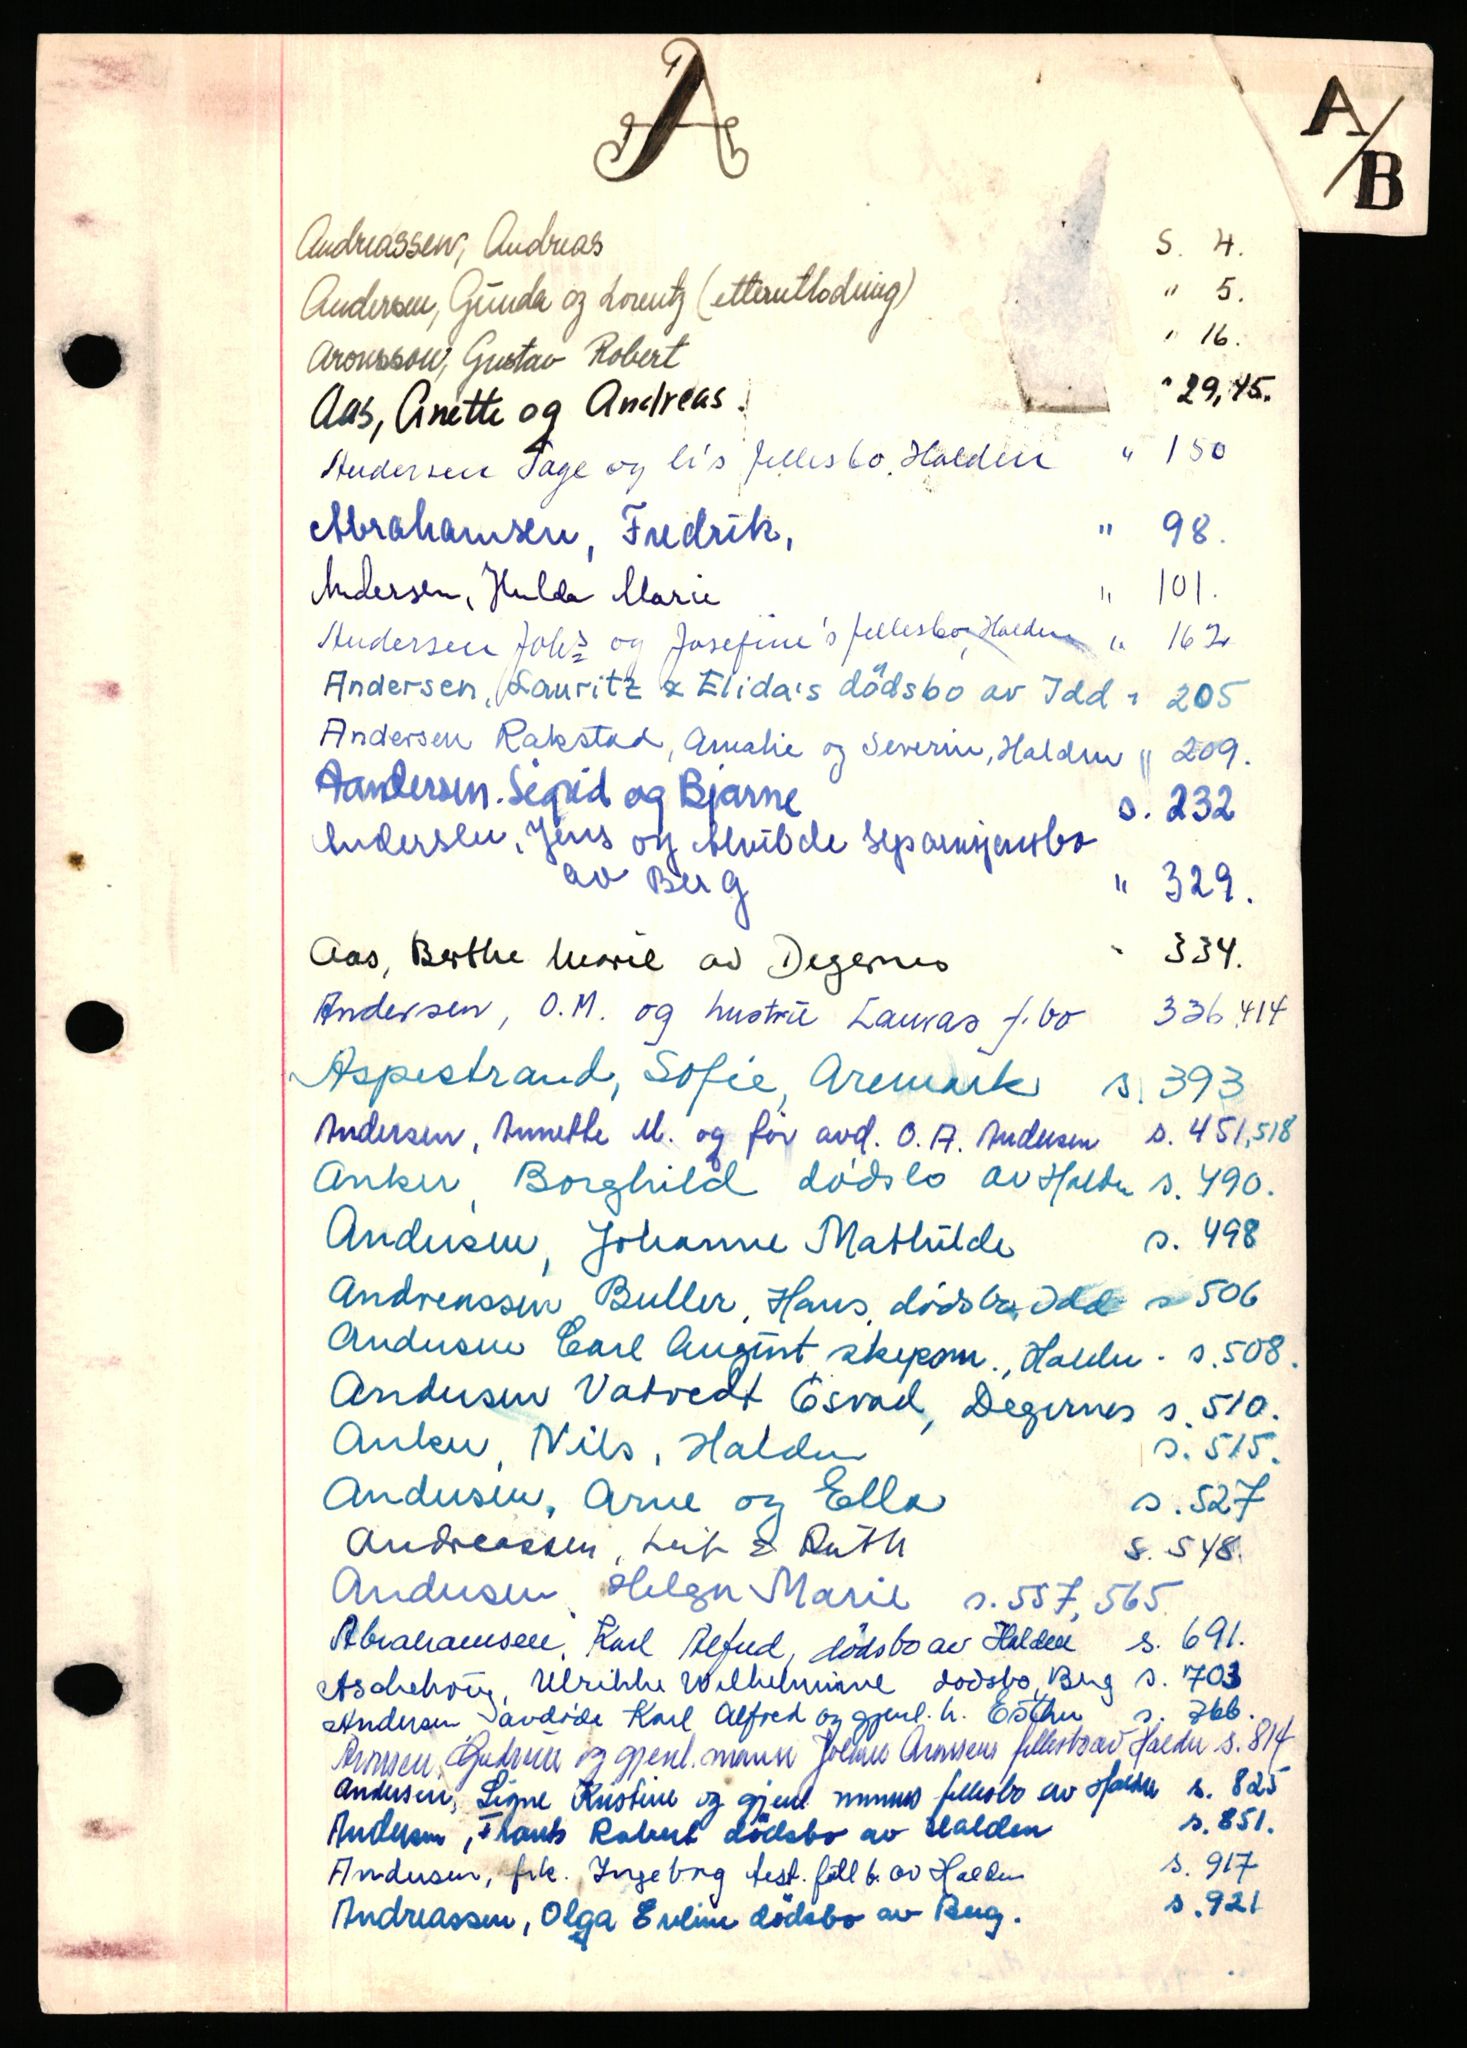 A
A/B
Andreassen, Andreas s. 4.
Andersen, Gunda og Lorentz (etterutlodning) " 5.
Aronsson, Gustav Robert " 16.
Aas, Anette og Andreas. " 29,45.
Andersen Tage og li's fellesbo, Halden " 150
Abrahamsen, Fredrik, " 98.
Andersen, Hulda Marie " 101.
Andersen Johs og Josefine's fellesbo, Halden " 162
Andersen, Lauritz & Elida's dödsbo av Idd " 205
Andersen Rakstad, Amalie og Severin, Halden " 209.
Aandersen. Sigrid og Bjarne s. 232
Andersen, Jens og Alvilde separasjonsbo
av Berg " 329.
Aas, Berthe Marie av Degernes " 334.
Andersen, O.M. og hustru Lauras f. bo 336,414
Aspestrand, Sofie, Aremark s. 393
Andersen, Annette M. og før avd. O. A. Andersen s. 451,518
Anker, Borghild dødsbo av Halden s. 490.
Andersen, Johanne Mathilde s. 498
Andreassen Buller, Hans, dødsbo, Idd s 506
Andersen Carl August skepsm., Halden. s. 508.
Andersen Vatvedt Osvad, Degernes s. 510.
Anker, Nils, Halden s. 515.
Andersen, Arne og Ella s. 527
Andreassen, Leif & Ruth s. 548.
Andersen, Helga Marie s. 557, 565
Abrahamsen, Karl Alfred, dødsbo av Halden s. 691.
Aschehoug, Ulrikke Wilhelmine dødsbo, Berg s. 703
Andersen avdøde Karl Alfred og gjenl. h. Esther s. 766.
Aronsen, Gudrun og gjenl. mann Johans Aronsens fellesbo av Halden s. 814
Andersen, Signe Kristine og gjenl manns fellesbo av Halden s. 825
Andersen, Frants Robert dödsbo av Halden s. 851.
Andersen, frk. Ingeborg test. fallb. av Halden s. 917
Andreassen, Olga Eveline dödsbo av Berg. s. 921